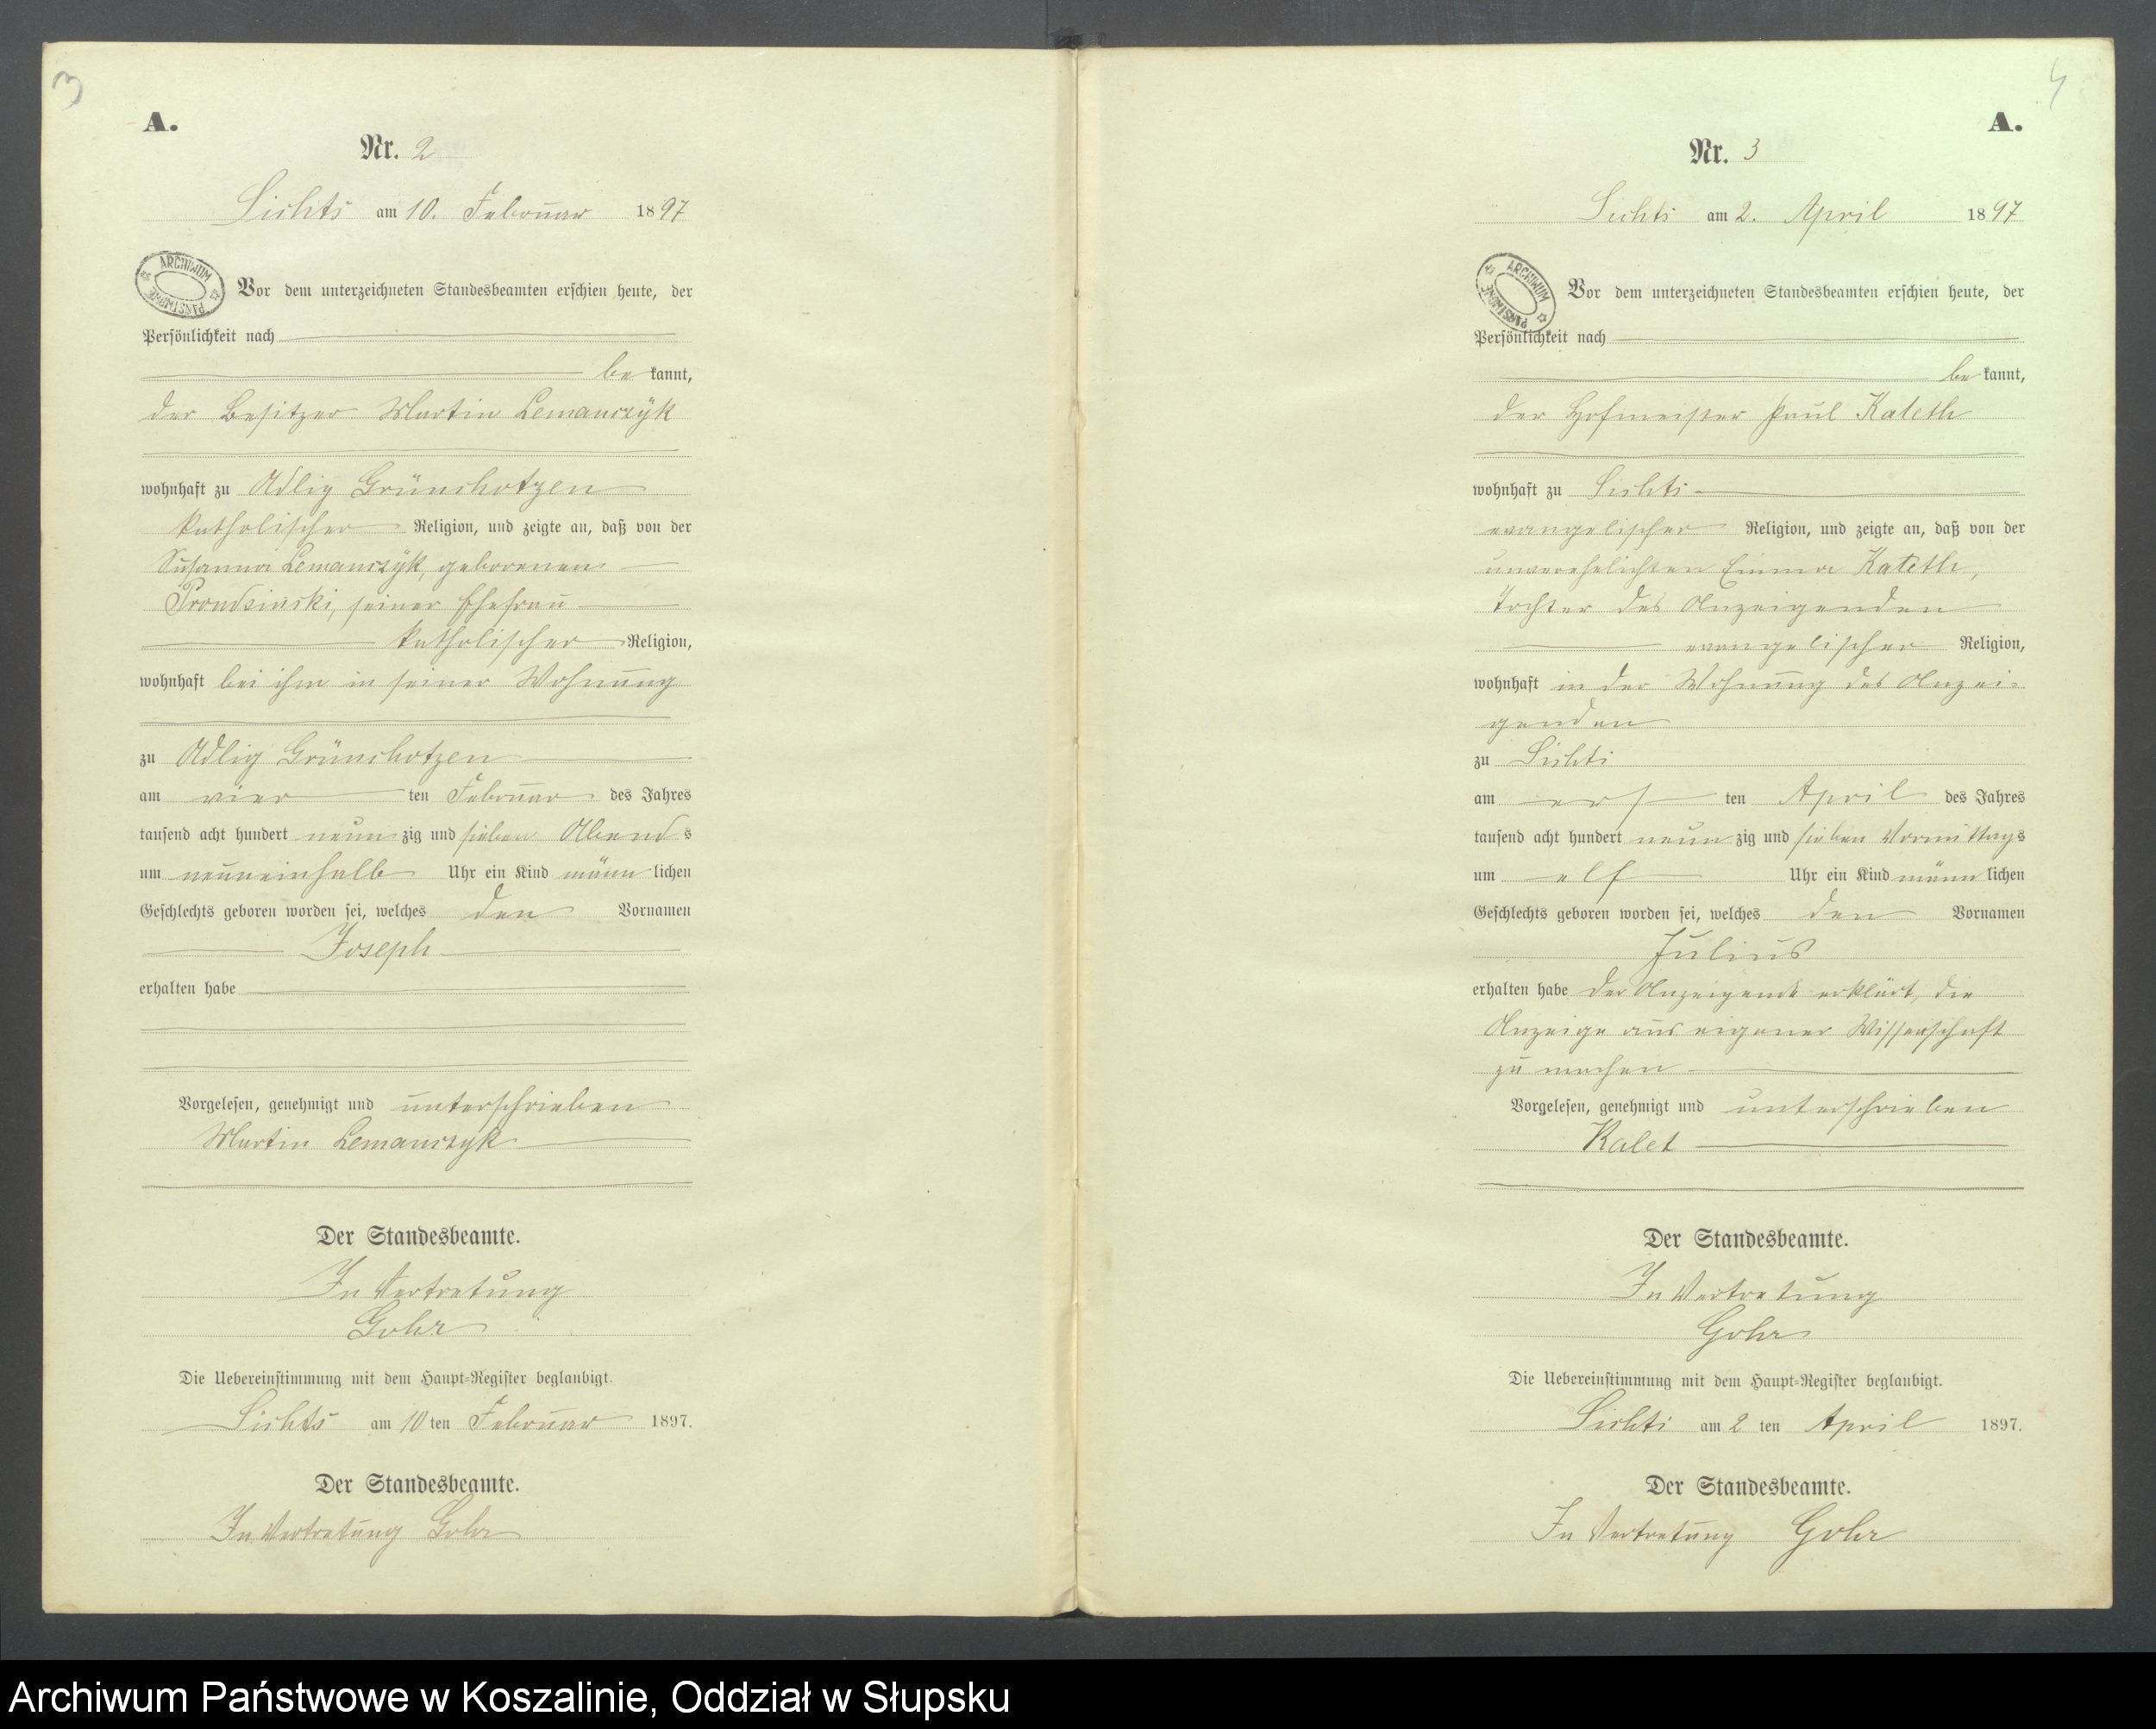 3
A.
Nr. 2
Lichts am 10. Februar 1897
ARCHIWUM PAŃSTWOWE
Vor dem unterzeichneten Standesbeamten erschien heute, der
Persönlichkeit nach
be kannt,
der Besitzer Martin Lemanczyk
wohnhaft zu Adlig Grünchotzen
katholischer Religion, und zeigte an, daß von der
Susanna Lemanczyk, geborenen
Prondsinski, seiner Ehefrau
katholischer Religion,
wohnhaft bei ihm in seiner Wohnung
zu Adlig Grünchotzen
am vier ten Februar des Jahres
tausend acht hundert neun zig und sieben Abend s
um neuneinhalb Uhr ein Kind männ lichen
Geschlechts geboren worden sei, welches den Vornamen
Joseph
erhalten habe
Vorgelesen, genehmigt und unterschrieben
Martin Lemanczyk
Der Standesbeamte.
In Vertretung
Gohr
Die Uebereinstimmung mit dem Haupt-Register beglaubigt.
Lichts am 10 ten Februar 1897.
Der Standesbeamte.
In Vertretung Gohr
4
A.
Nr. 3
Lichts am 2. April 1897
ARCHIWUM PAŃSTWOWE
Vor dem unterzeichneten Standesbeamten erschien heute, der
Persönlichkeit nach
be kannt,
der Hofmeister Paul Kateth
wohnhaft zu Lichts
evangelischer Religion, und zeigte an, daß von der
unverehelichten Emma Kateth,
Tochter des Anzeigenden
evangelischer Religion,
wohnhaft in der Wohnung des Anzei-
genden
zu Lichts
am ers ten April des Jahres
tausend acht hundert neun zig und sieben Vormittags
um elf Uhr ein Kind männ lichen
Geschlechts geboren worden sei, welches den Vornamen
Julius
erhalten habe Der Anzeigende erklärt, die
Anzeige aus eigener Wissenschaft
zu machen
Vorgelesen, genehmigt und unterschrieben
Kalet
Der Standesbeamte.
In Vertretung
Gohr
Die Uebereinstimmung mit dem Haupt-Register beglaubigt.
Lichts am 2 ten April 1897.
Der Standesbeamte.
In Vertretung Gohr
Archiwum Państwowe w Koszalinie, Oddział w Słupsku